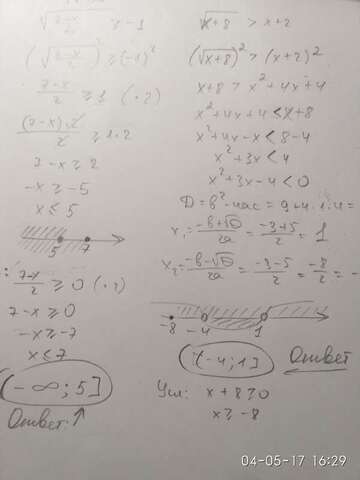 √(7-x)/2 ≥ -1
(√(7-x)/2)² ≥ (-1)²
(7-x)/2 ≥ 1 (·2)
(7-x)·2/2 ≥ 1·2
7-x ≥ 2
-x ≥ -5
x ≤ 5
5 7
: (7-x)/2 ≥ 0 (·2)
7-x ≥ 0
-x ≥ -7
x < 7
(-∞; 5]
Ответ:↑
√x+8 > x+2
(√x+8)² > (x+2)²
x+8 > x²+4x+4
x²+4x+4 < x+8
x²+4x-x < 8-4
x²+3x < 4
x²+3x-4 < 0
D = b²-4ac = 9+4·1·4=
x₁ = (-b+√D)/2a = (-3+5)/2 = 1
x₂ = (-b-√D)/2a = (-3-5)/2 = -8/2 = -
-8 -4 1
(-4; 1] Ответ
Усл: x+8≥0
x ≥ -8
04-05-17 16:29